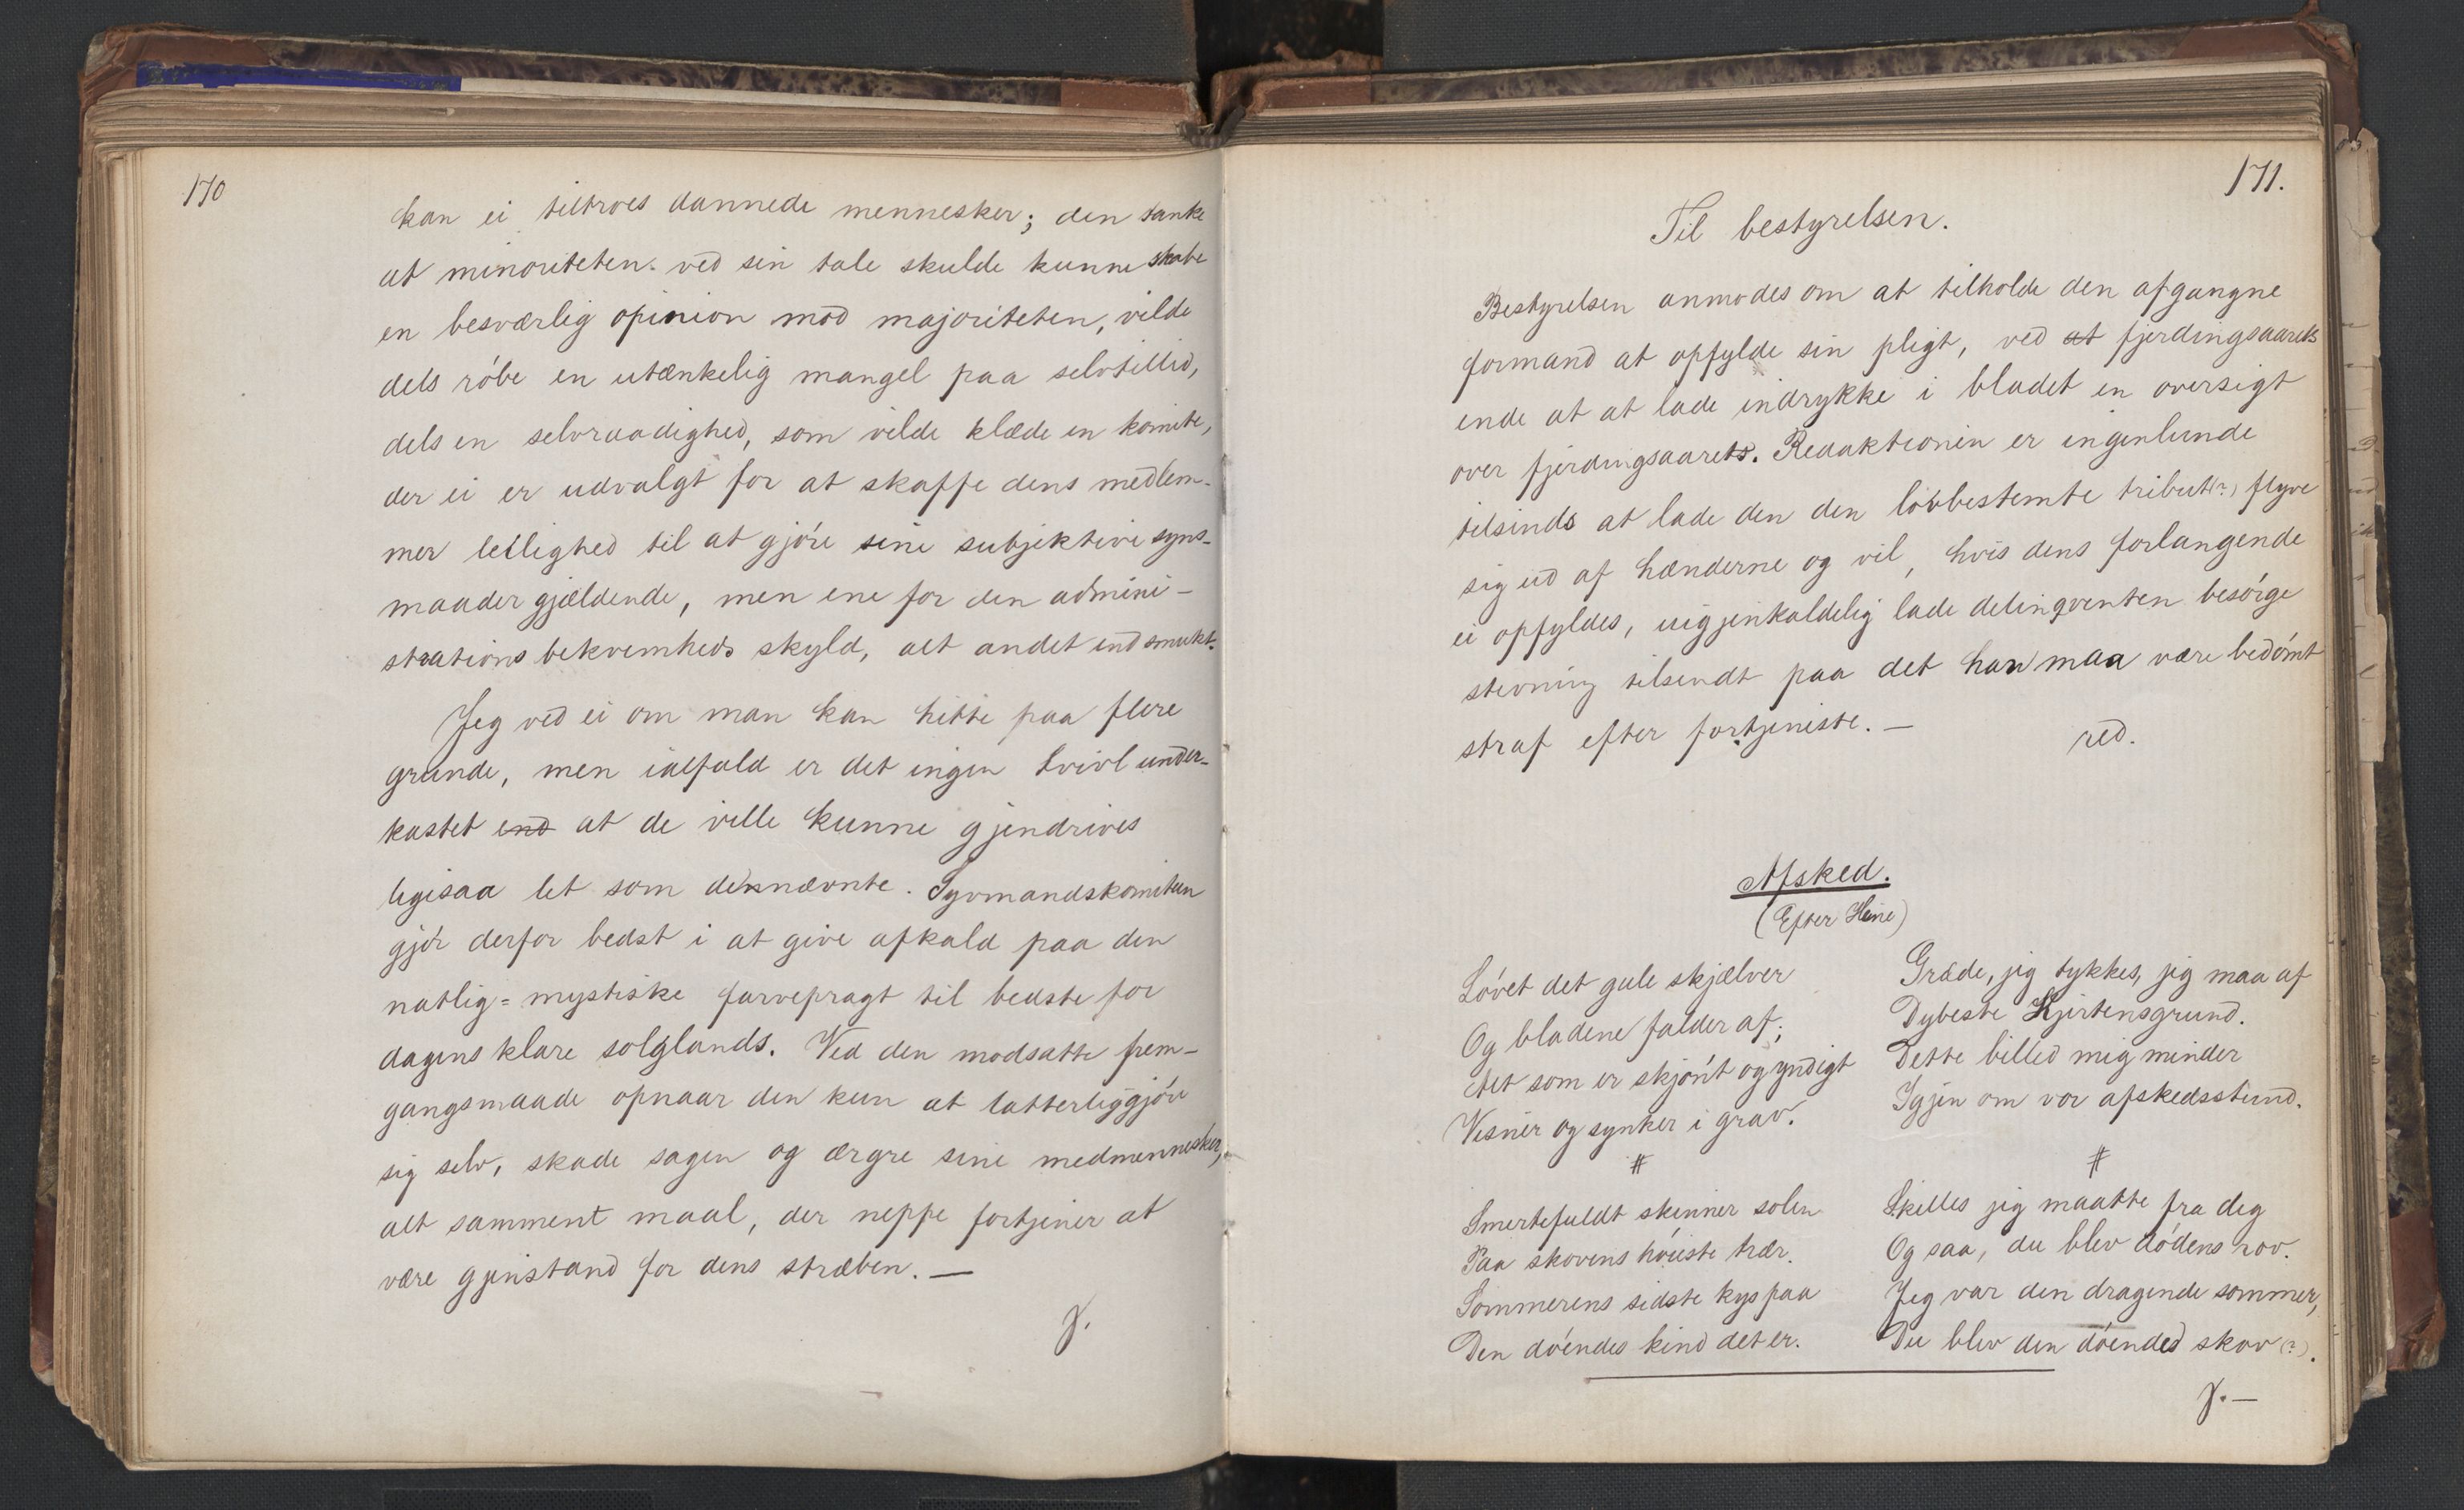 170
kan ei tiltroes dannede mennesker; den tanke
at minoriteten ved sin tale skulde kunne skabe
en besværlig opinion mod majoriteten, vilde
dels røbe en utænkelig mangel paa selvtillid,
dels en selvraadighed, som vilde klæde en komite,
der ei er udvalgt for at skaffe dens medlem-
mer leilighed til at gjøre sine subjektive syns-
maader gjældende, men ene for den admini-
strations bekvemheds skyld, alt andet end smukt.
Jeg ved ei om man kan hitte paa flere
grunde, men ialfald er det ingen tvivl under-
kastet end at de ville kunne gjendrives
ligesaa let som de nævnte. Syvmandskomiteen
gjør derfor bedst i at give afkald paa den
natlig=mystiske farvepragt til bedste for
dagens klare solglands. Ved den modsatte frem-
gangsmaade opnaar den kun at latterliggjøre
sig selv, skade sagen og ærgre sine medmennesker,
alt samment maal, der neppe fortjener at
være gjenstand for dens stræben. —
γ.
171.
Til bestyrelsen.
Bestyrelsen anmodes om at tilholde den afgangne
formand at opfylde sin pligt, ved at fjerdingsaarets
ende at at lade indrykke i bladet en oversigt
over fjerdingsaarets. Redaktionen er ingenlunde
tilsinds at lade den den lovbestemte tribut(?) flyve
sig ud af hænderne og vil, hvis dens forlangende
ei opfyldes, uigjenkaldelig lade delinqventen besørge
stevning tilsendt paa det han maa være bedømt
straf efter fortjeneste. —
red.
Afsked.
(Efter Heine)
Løvet det gule skjælver
Og bladene falder af;
Alt som er skjønt og yndigt
Visner og synker i grav.
#
Smertefuldt skinner solen
Paa skovens høieste trær.
Sommerens sidste kys paa
Den døendes kind det er.
Græde, jeg tykkes, jeg maa af
Dybeste Hjertensgrund.
Dette billed mig minder
Igjen om vor afskedsstund.
#
Skilles jeg maatte fra dig
Og saa, du blev dødens rov.
Jeg var den dragende sommer,
Du blev den døended skov (?).
γ. —